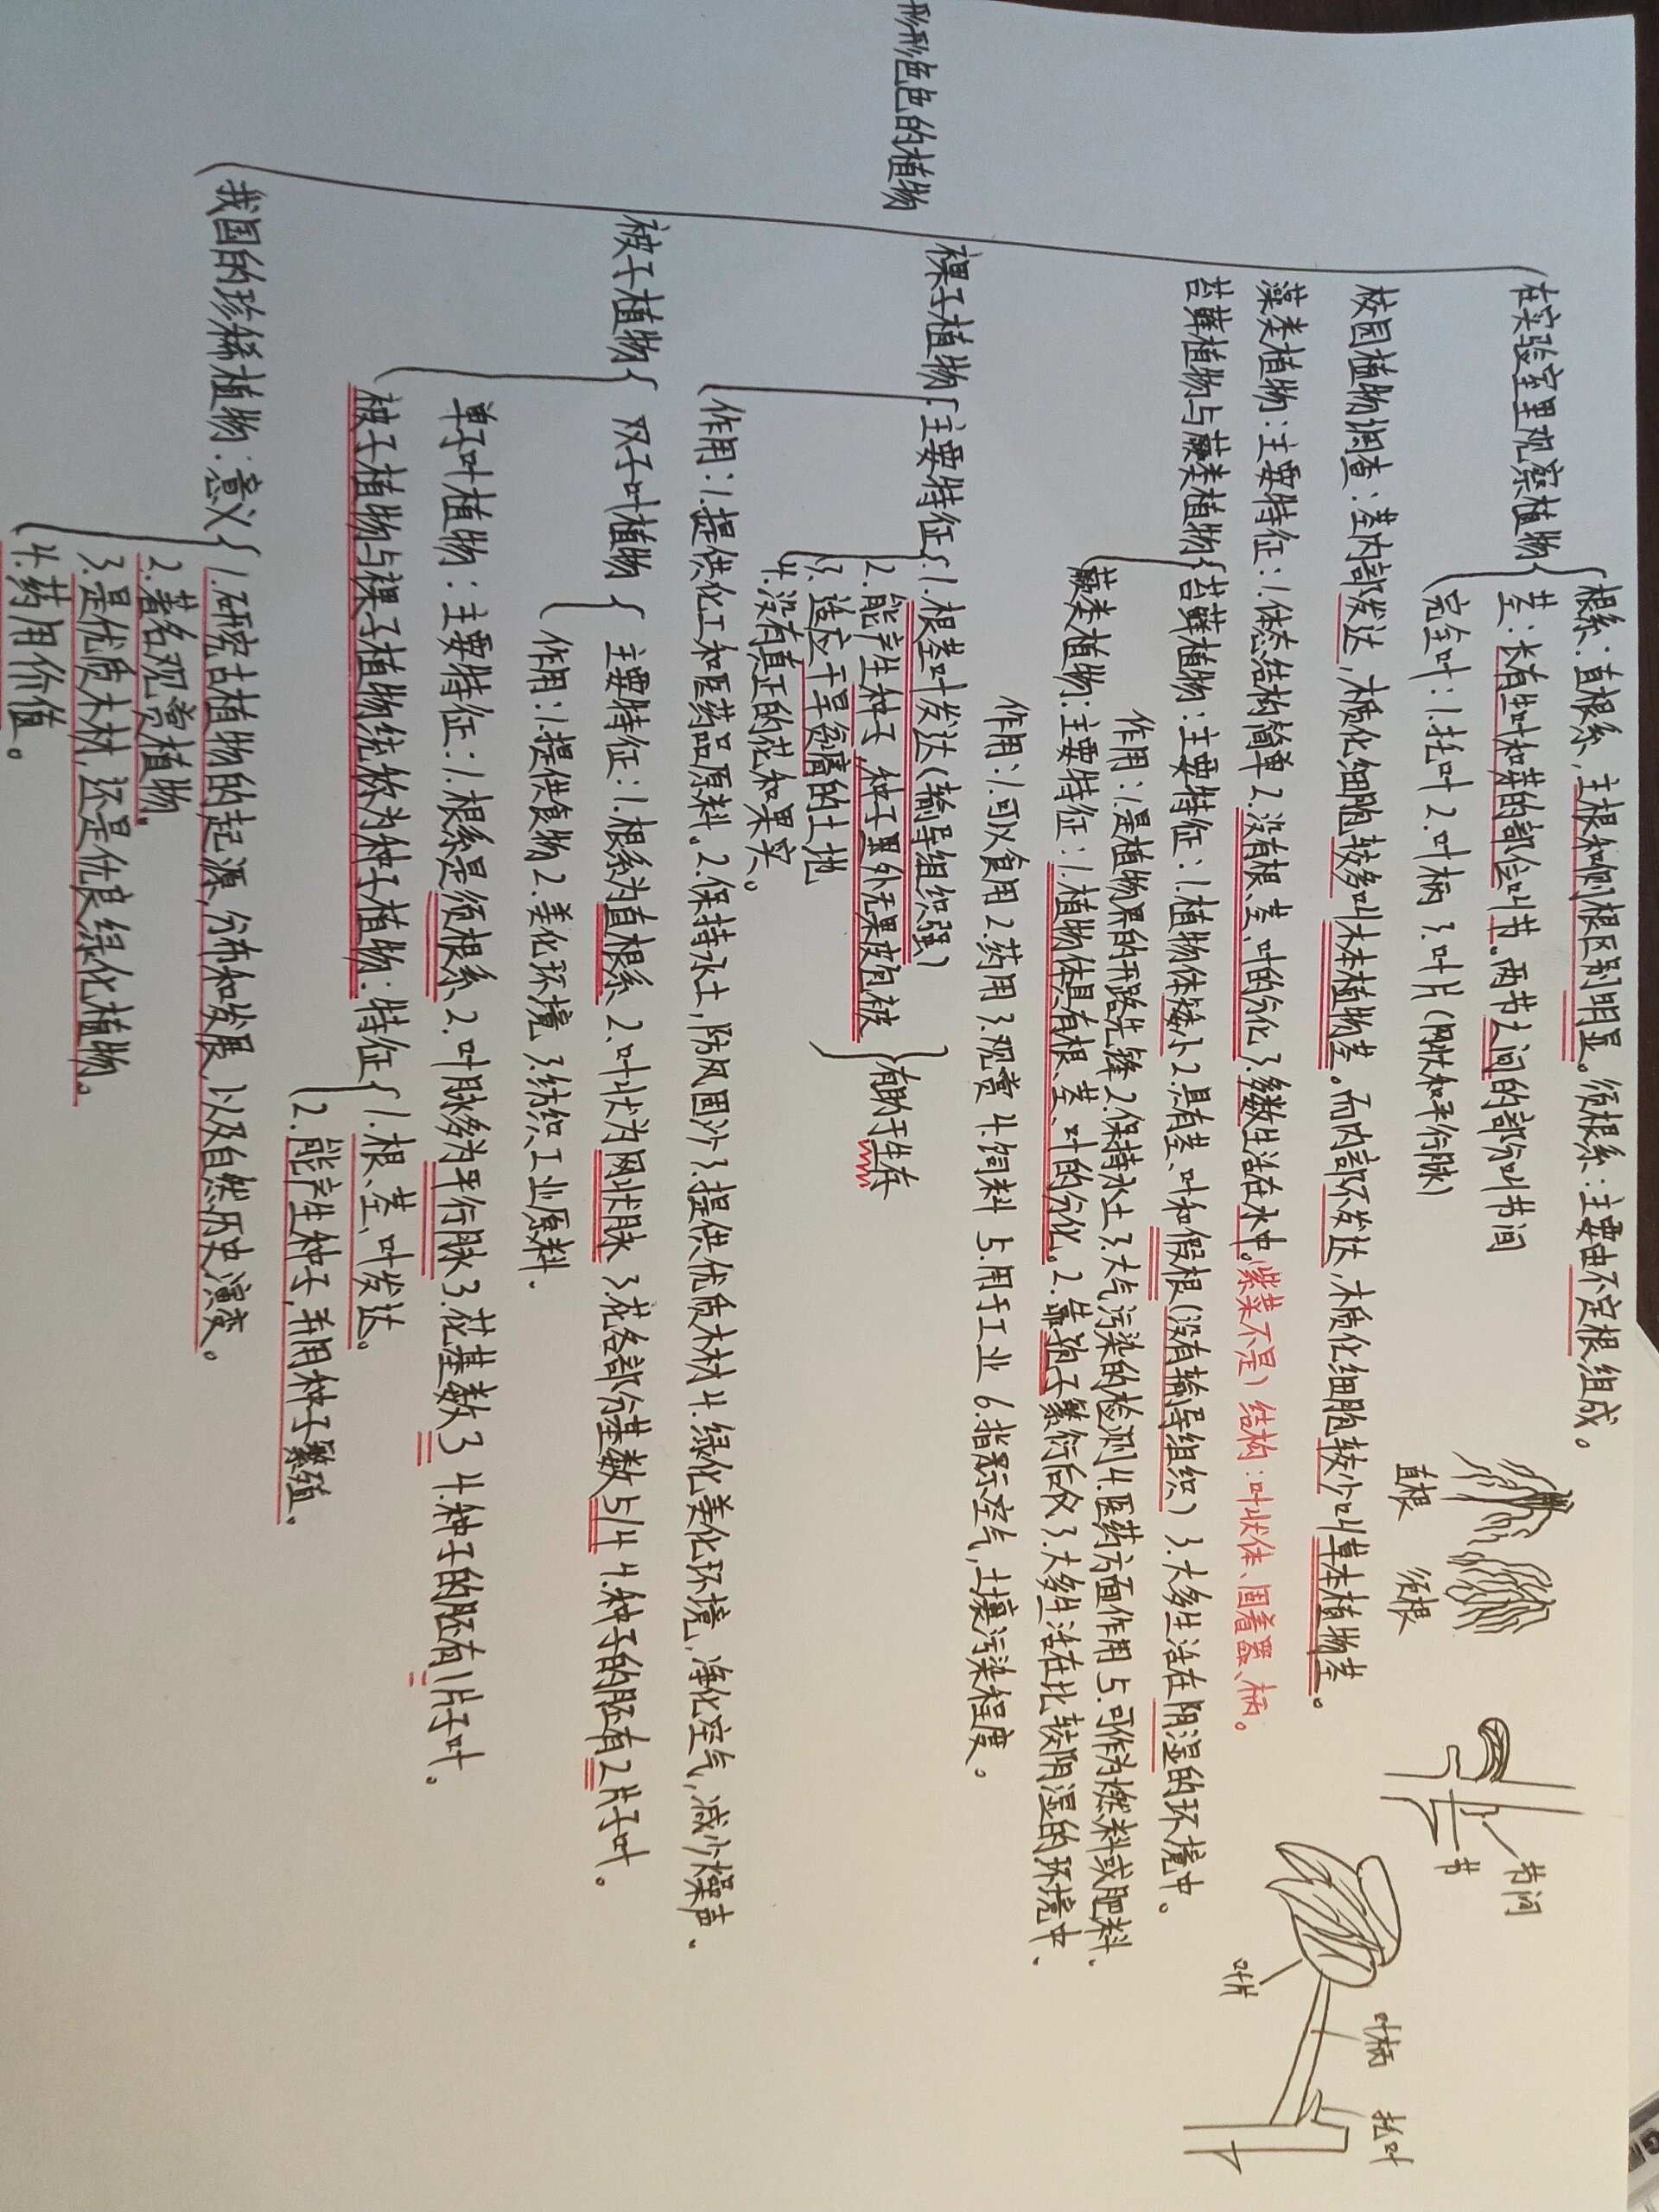 形形色色的植物
在实验室里观察植物
根系:直根系,主根和侧根区别明显。须根系:主要由不定根组成。
茎:长有生叶和芽的部位叫节。两节之间的部份叫节间
完全叶:1.托叶 2.叶柄 3.叶片(网状和平行脉)
直根 须根
节间
节
叶片
叶柄
托叶
校园植物调查:茎内部发达,木质化细胞较多叫木本植物茎。而内部不发达,木质化细胞较少叫草本植物茎。
藻类植物:主要特征:1.体态结构简单 2.没有根、茎、叶的分化 3.多数生活在水中。(紫菜不是) 结构:叶状体、固着器、柄。
苔藓植物与蕨类植物
苔藓植物:主要特征:1.植物体矮小 2.具有茎、叶和假根(没有输导组织) 3.大多生活在阴湿的环境中。
作用:1.是植物界的开路先锋 2.保持水土 3.大气污染的检测 4.医药方面作用 5.可作为燃料或肥料、
蕨类植物:主要特征:1.植物体具有根、茎、叶的分化。2.靠孢子繁衍后代 3.大多生活在比较阴湿的环境中、
作用:1.可以食用 2.药用 3.观赏 4.饲料 5.用于工业 6.指示空气,土壤污染程度。
裸子植物
主要特征:1.根茎叶发达(输导组织强)
2.能产生种子,种子裏外无果皮包被
3.适应干旱贫瘠的土地
有助于生存
4.没有真正的花和果实。
作用:1.提供化工和医药品原料。2.保持水土,防风固沙 3.提供优质木材 4.绿化美化环境,净化空气,减少燥声.
被子植物
双子叶植物
主要特征:1.根系为直根系、2.叶状为网状脉 3.花各部分基数5/4 4.种子的胚有2片子叶。
作用:1.提供食物 2.美化环境 3.纺织工业原料.
单子叶植物:主要特征:1.根系是须根系、2.叶脉多为平行脉 3.花基数3 4.种子的胚有1片子叶。
被子植物与裸子植物统称为种子植物:特征
1.根、茎、叶发达。
2.能产生种子,并用种子繁殖。
我国的珍稀植物:意义
1.研究古植物的起源,分布和发展,以及自然历史演变。
2.著名观赏植物。
3.是优质木材,还是优良绿化植物。
4.药用价值。